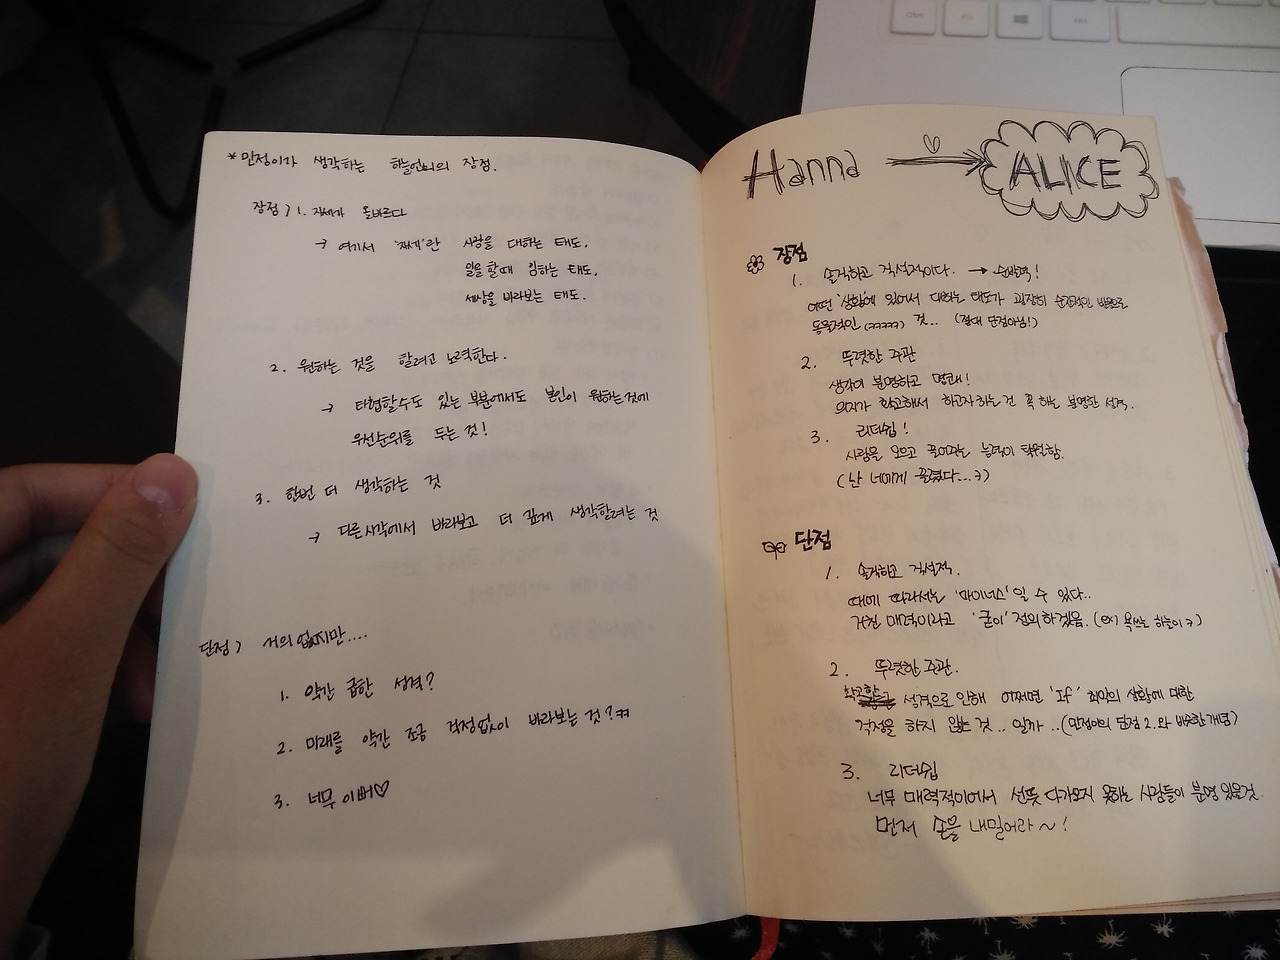 * 민정이가 생각하는 하늘언니의 장점.
장점) 1. 자세가 올바르다
→ 여기서 '자세'란 사람을 대하는 태도.
일을 할때 임하는 태도.
세상을 바라보는 태도.
2. 원하는 것을 할려고 노력한다.
→ 타협할수도 있는 부분에서도 본인이 원하는것에
우선순위를 두는 것!
3. 한번 더 생각하는 것
→ 다른시각에서 바라보고 더 깊게 생각할려는 것
단점) 거의 없지만....
1. 약간 급한 성격?
2. 미래를 약간 조금 걱정없이 바라보는 것?ㅋㅋ
3. 너무 이뻐♡
Hanna → ALICE
장점
1. 솔직하고 직설적이다. → 순발력!
어떤 상황에 있어서 대하는 태도가 굉장히 순간적인 반응으로
동물적인 (ㅋㅋㅋㅋㅋ) 것.. (절대 단점아님!)
2. 뚜렷한 주관
생각이 분명하고 명쾌!
의지가 확고해서 하고자하는건 꼭 하는 분명한 성격.
3. 리더쉽!
사람을 모으고 끌어가는 능력이 탁월함.
(난 너에게 끌렸다...ㅋ)
단점
1. 솔직하고 직설적.
때에 따라서는 '마이너스' 일 수 있다..
거친 매력이라고 '굳이' 정의하겠음. (ex) 욕쓰는 하늘이ㅋ)
2. 뚜렷한 주관.
확고한 성격으로 인해 어쩌면 'If' 최악의 상황에 대한
걱정을 하지 않는 것.. 일까.. (민정이의 단점 2.와 비슷한 개념)
3. 리더쉽
너무 매력적이어서 선뜻 다가오지 못하는 사람들이 분명 있을것.
먼저 손을 내밀어라~!